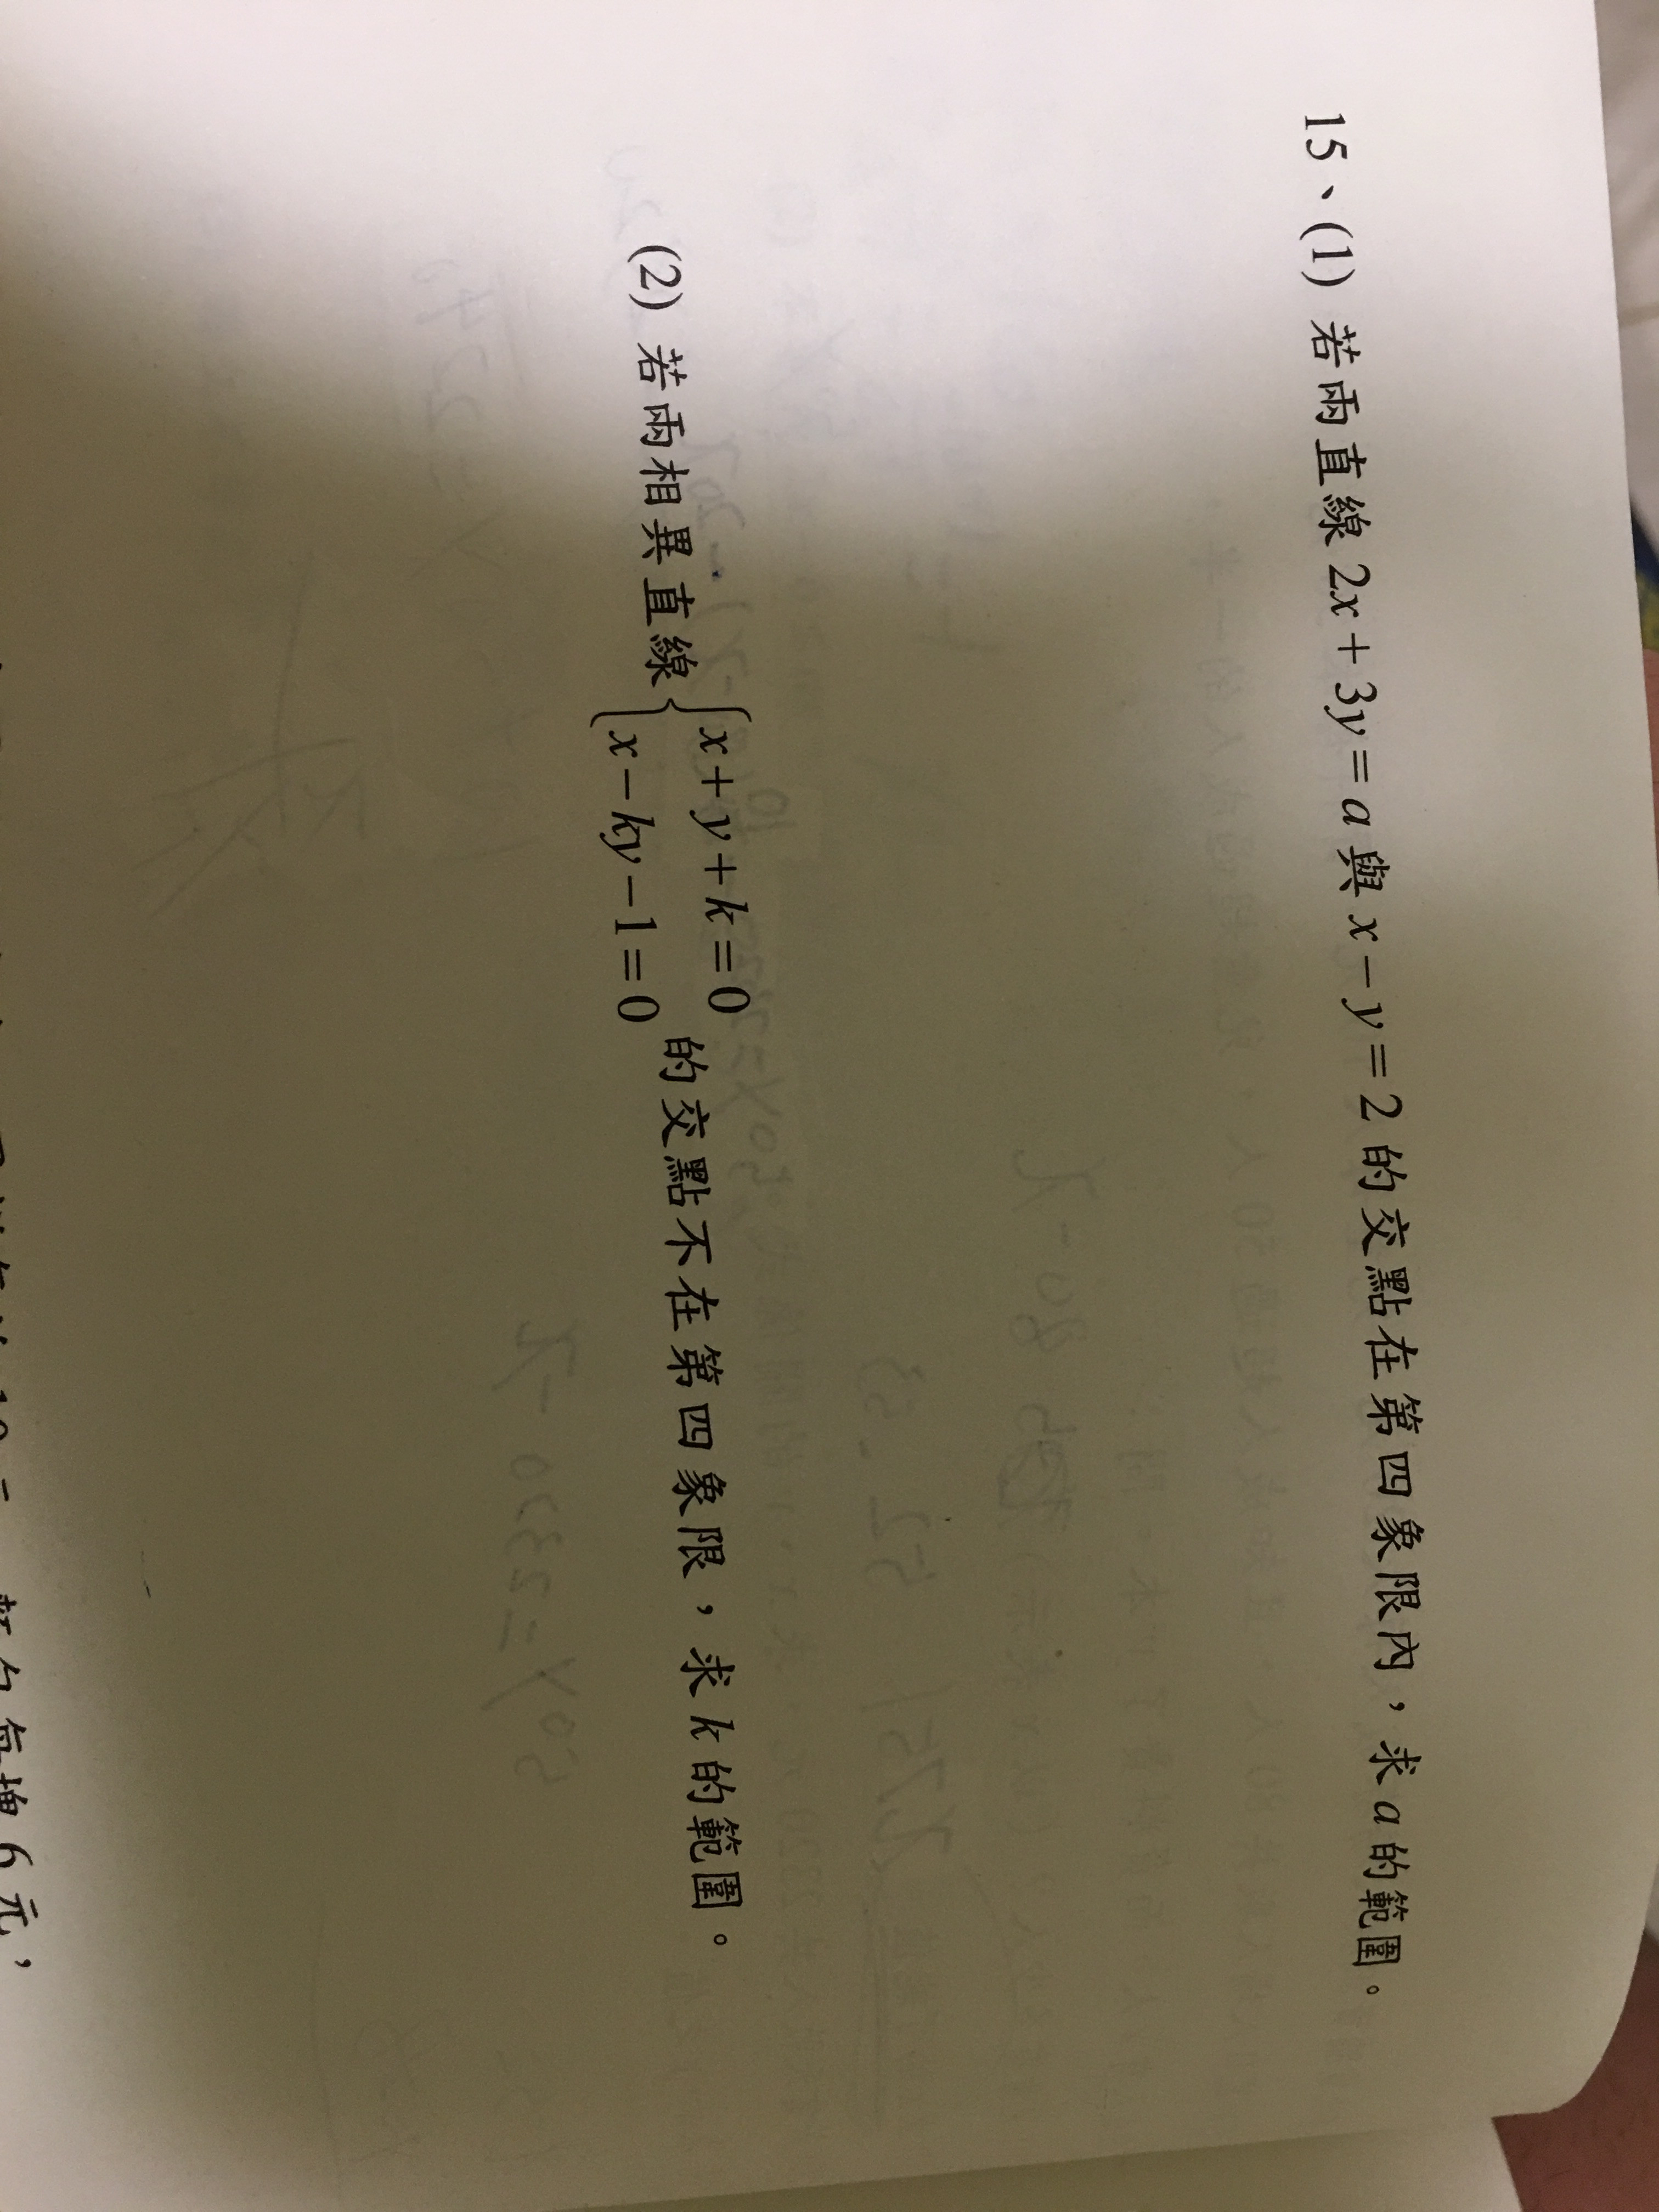 15、(1) 若兩直線 2x+3y=a 與 x-y=2 的交點在第四象限內，求 a 的範圍。
(2) 若兩相異直線 { x+y+k=0
x-ky-1=0 的交點不在第四象限，求 k 的範圍。
每增6元，